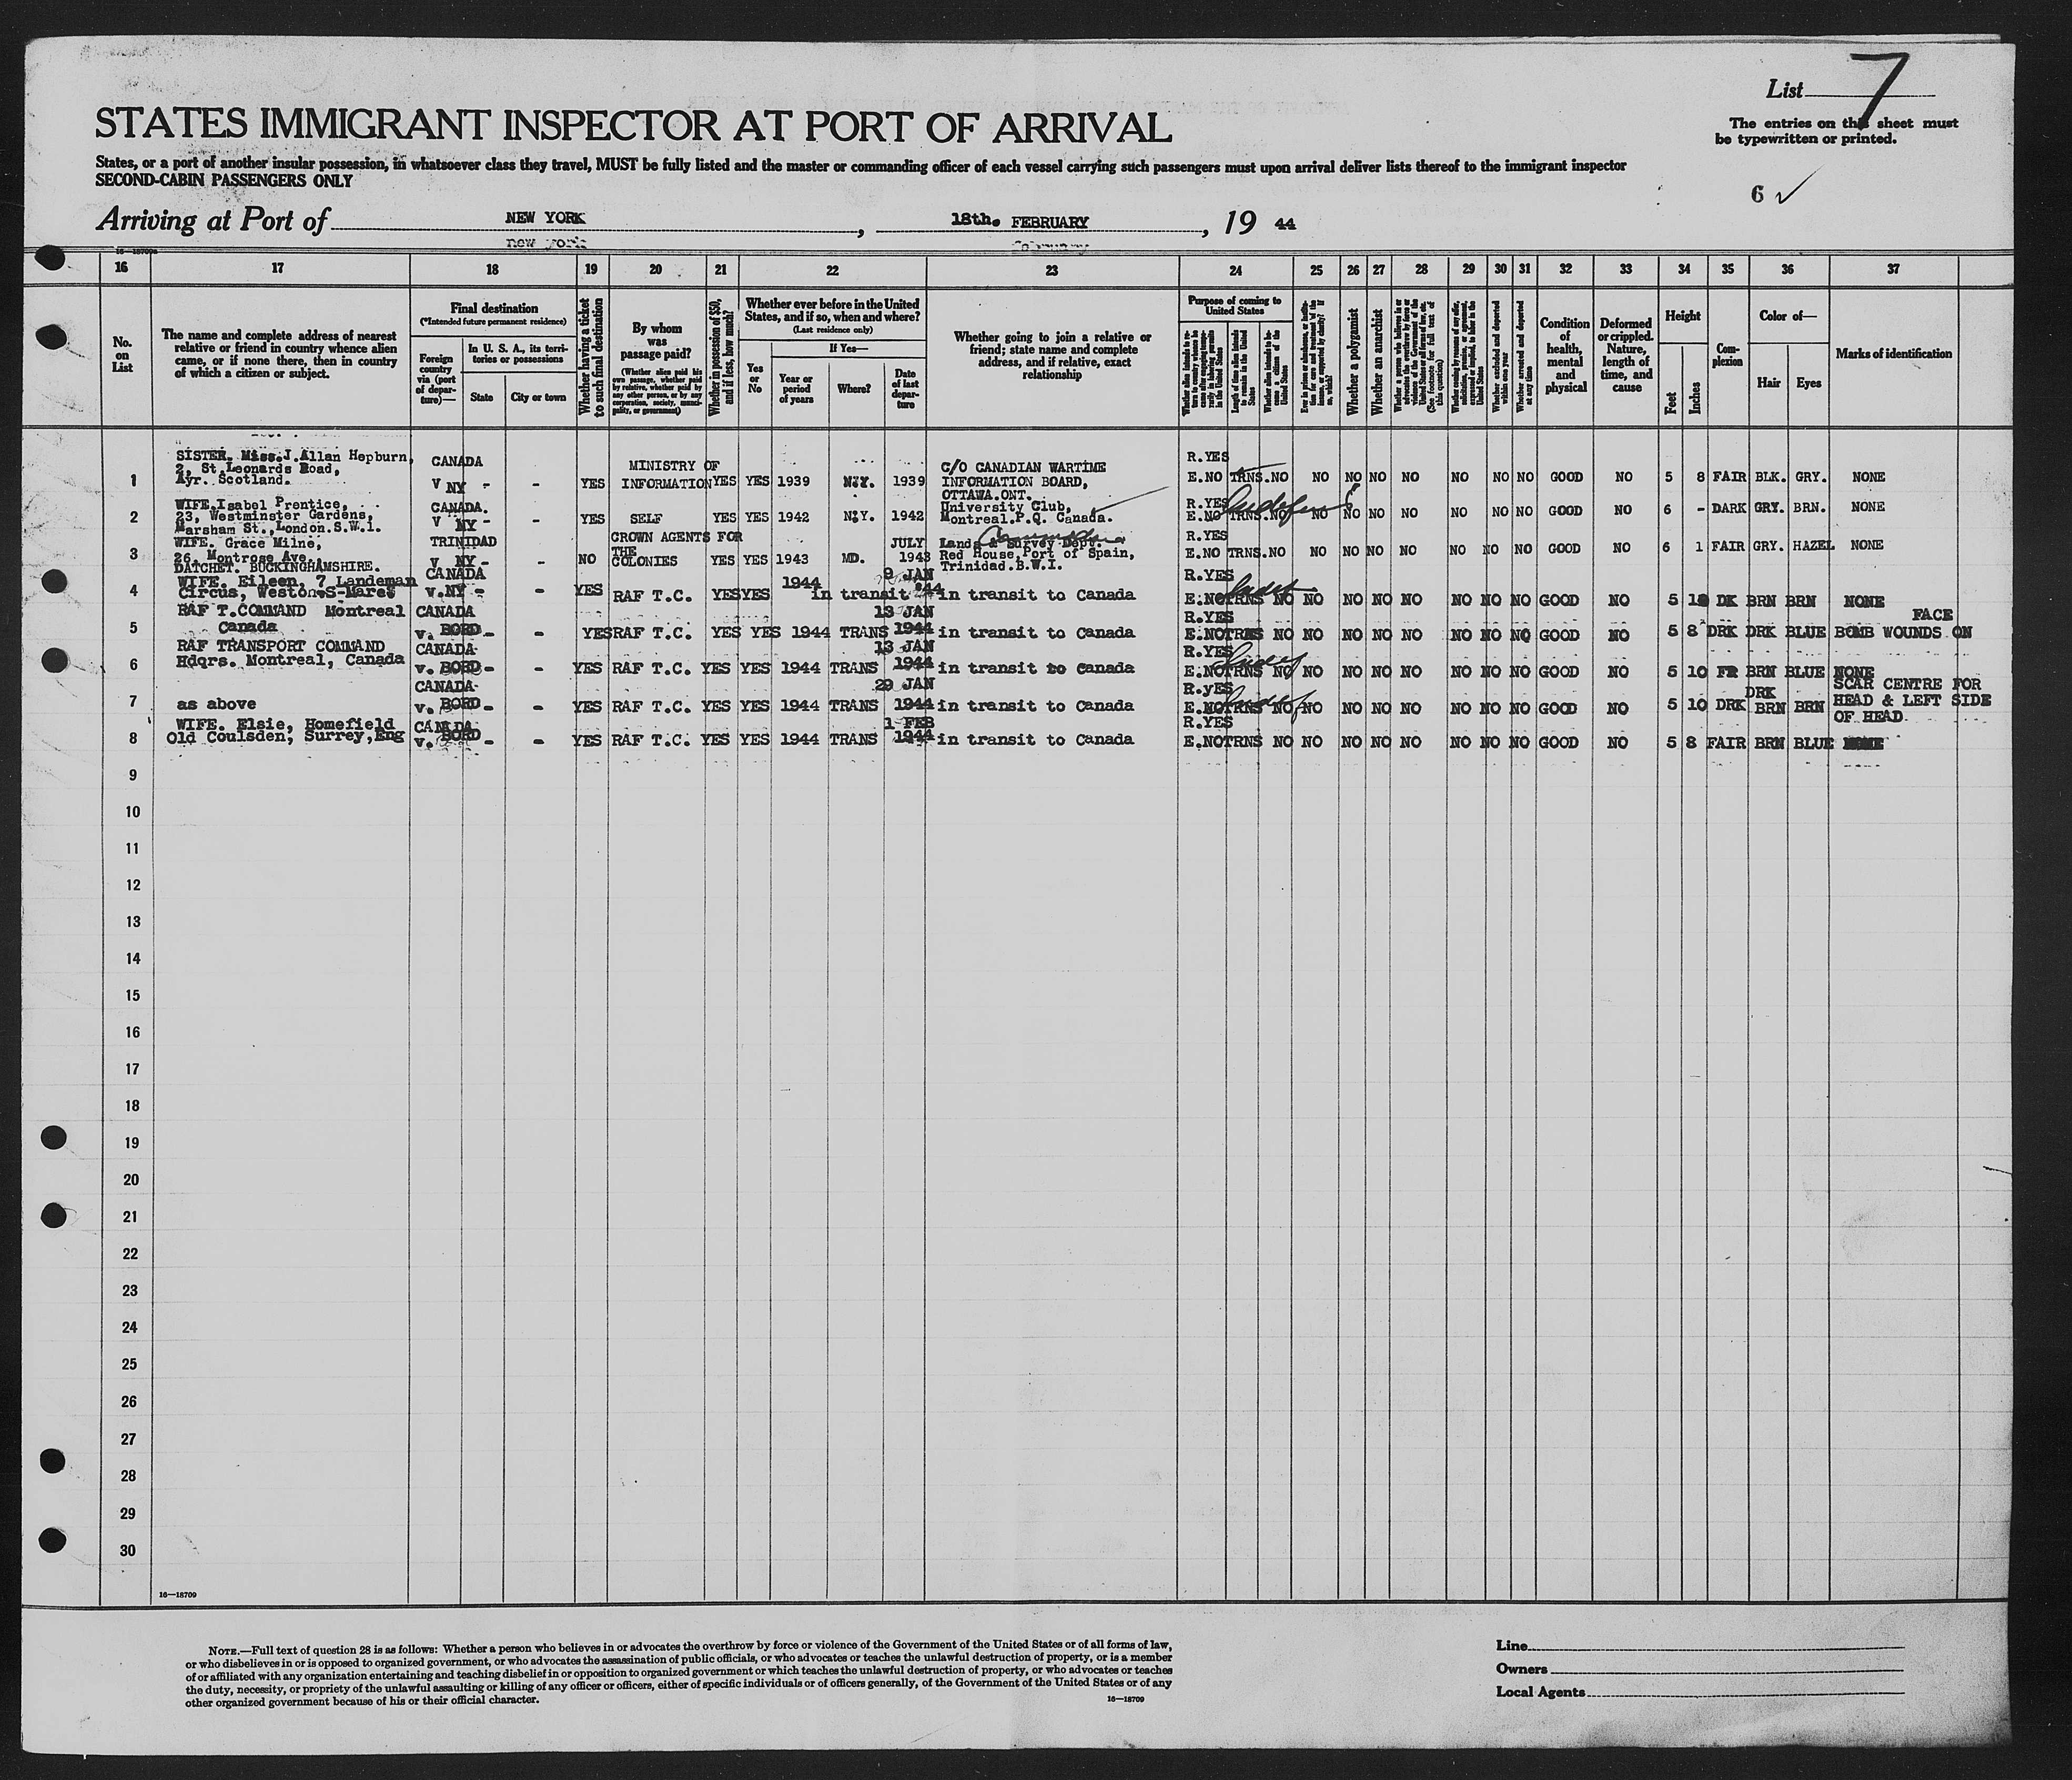 List 7
The entries on this sheet must
be typewritten or printed.
STATES IMMIGRANT INSPECTOR AT PORT OF ARRIVAL
States, or a port of another insular possession, in whatsoever class they travel, MUST be fully listed and the master or commanding officer of each vessel carrying such passengers must upon arrival deliver lists thereof to the immigrant inspector
SECOND-CABIN PASSENGERS ONLY
6 ✓
Arriving at Port of NEW YORK, 18th. FEBRUARY, 19 44
new york
16 17 18 19 20 21 22 23 24 25 26 27 28 29 30 31 32 33 34 35 36 37
No.
on
List
The name and complete address of nearest
relative or friend in country whence alien
came, or if none there, then in country
of which a citizen or subject.
Final destination
(*Intended future permanent residence)
Foreign
country
via (port
of depar-
ture)—
In U. S. A., its terri-
tories or possessions
State
City or town
Whether having a ticket
to such final destination
By whom
was
passage paid?
(Whether alien paid his
own passage, whether paid
by relative, whether paid by
any other person, or by any
corporation, society, munici-
pality, or government)
Whether in possession of $50,
and if less, how much?
Whether ever before in the United
States, and if so, when and where?
(Last residence only)
Yes
or
No
If Yes—
Year or
period
of years
Where?
Date
of last
depar-
ture
Whether going to join a relative or
friend; state name and complete
address, and if relative, exact
relationship
Purpose of coming to
United States
Length of time alien intends
to remain in the United
States
Whether alien intends to be-
come a citizen of the
United States
Whether a polygamist
Whether an anarchist
Whether excluded and deported
within one year
Whether arrested and deported
at any time
Condition
of
health,
mental
and
physical
Deformed
or crippled.
Nature,
length of
time, and
cause
Height
Feet
Inches
Com-
plexion
Color of—
Hair
Eyes
Marks of identification
SISTER. Miss.J.Allan Hepburn, CANADA MINISTRY OF C/O CANADIAN WARTIME R.YES
2, St.Leonards Road,
1 Ayr. Scotland. V NY - - YES INFORMATION YES YES 1939 N.Y. 1939 INFORMATION BOARD, E.NO TRNS.NO NO NO NO NO NO NO NO GOOD NO 5 8 FAIR BLK. GRY. NONE
OTTAWA.ONT.
WIFE.Isabel Prentice, CANADA. University Club, R.YES
2 23, Westminster Gardens, V NY - - YES SELF YES YES 1942 N.Y. 1942 Montreal.P.Q. Canada. E.NO TRNS.NO NO NO NO NO NO NO NO GOOD NO 6 - DARK GRY. BRN. NONE
Marsham St.,London.S.W.1.
WIFE. Grace Milne, TRINIDAD CROWN AGENTS FOR JULY Lands & Survey Dept. R.YES
3 26, Montrose Ave, V NY - - NO THE COLONIES YES YES 1943 MD. 1943 Red House,Port of Spain, E.NO TRNS.NO NO NO NO NO NO NO NO GOOD NO 6 1 FAIR GRY. HAZEL NONE
DATCHET. BUCKINGHAMSHIRE. Trinidad.B.W.I.
WIFE. Eileen, 7 Landeman CANADA 1944 9 JAN R.YES
4 Circus, Weston-S-Mare v.NY - YES RAF T.C. YES YES in transit '44 in transit to Canada E.NO TRNS NO NO NO NO NO NO NO NO GOOD NO 5 DK BRN BRN NONE
RAF T.COMMAND Montreal CANADA 13 JAN R.YES FACE
5 Canada v. BORD - - YES RAF T.C. YES YES 1944 TRANS 1944 in transit to Canada E.NO TRNS NO NO NO NO NO NO NO NO GOOD NO 5 8 DRK DRK BLUE BOMB WOUNDS ON
RAF TRANSPORT COMMAND CANADA 13 JAN R.YES
6 Hdqrs. Montreal, Canada v. BORD - - YES RAF T.C. YES YES 1944 TRANS 1944 in transit to Canada E.NO TRNS NO NO NO NO NO NO NO NO GOOD NO 5 10 FR BRN BLUE NONE
CANADA 29 JAN R.yES DRK SCAR CENTRE FOR
7 as above v. BORD - - YES RAF T.C. YES YES 1944 TRANS 1944 in transit to Canada E.NO TRNS NO NO NO NO NO NO NO NO GOOD NO 5 10 DRK BRN BRN HEAD & LEFT SIDE
OF HEAD
WIFE. Elsie, Homefield CANADA 1 FEB R.YES
8 Old Coulsden, Surrey,Eng v. BORD - - YES RAF T.C. YES YES 1944 TRANS 1944 in transit to Canada E.NO TRNS NO NO NO NO NO NO NO NO GOOD NO 5 8 FAIR BRN BLUE
9
10
11
12
13
14
15
16
17
18
19
20
21
22
23
24
25
26
27
28
29
30
16—18709
NOTE.—Full text of question 28 is as follows: Whether a person who believes in or advocates the overthrow by force or violence of the Government of the United States or of all forms of law,
or who disbelieves in or is opposed to organized government, or who advocates the assassination of public officials, or who advocates or teaches the unlawful destruction of property, or is a member
of or affiliated with any organization entertaining and teaching disbelief in or opposition to organized government or which teaches the unlawful destruction of property, or who advocates or teaches
the duty, necessity, or propriety of the unlawful assaulting or killing of any officer or officers, either of specific individuals or of officers generally, of the Government of the United States or of any
other organized government because of his or their official character.
16—18709
Line
Owners
Local Agents